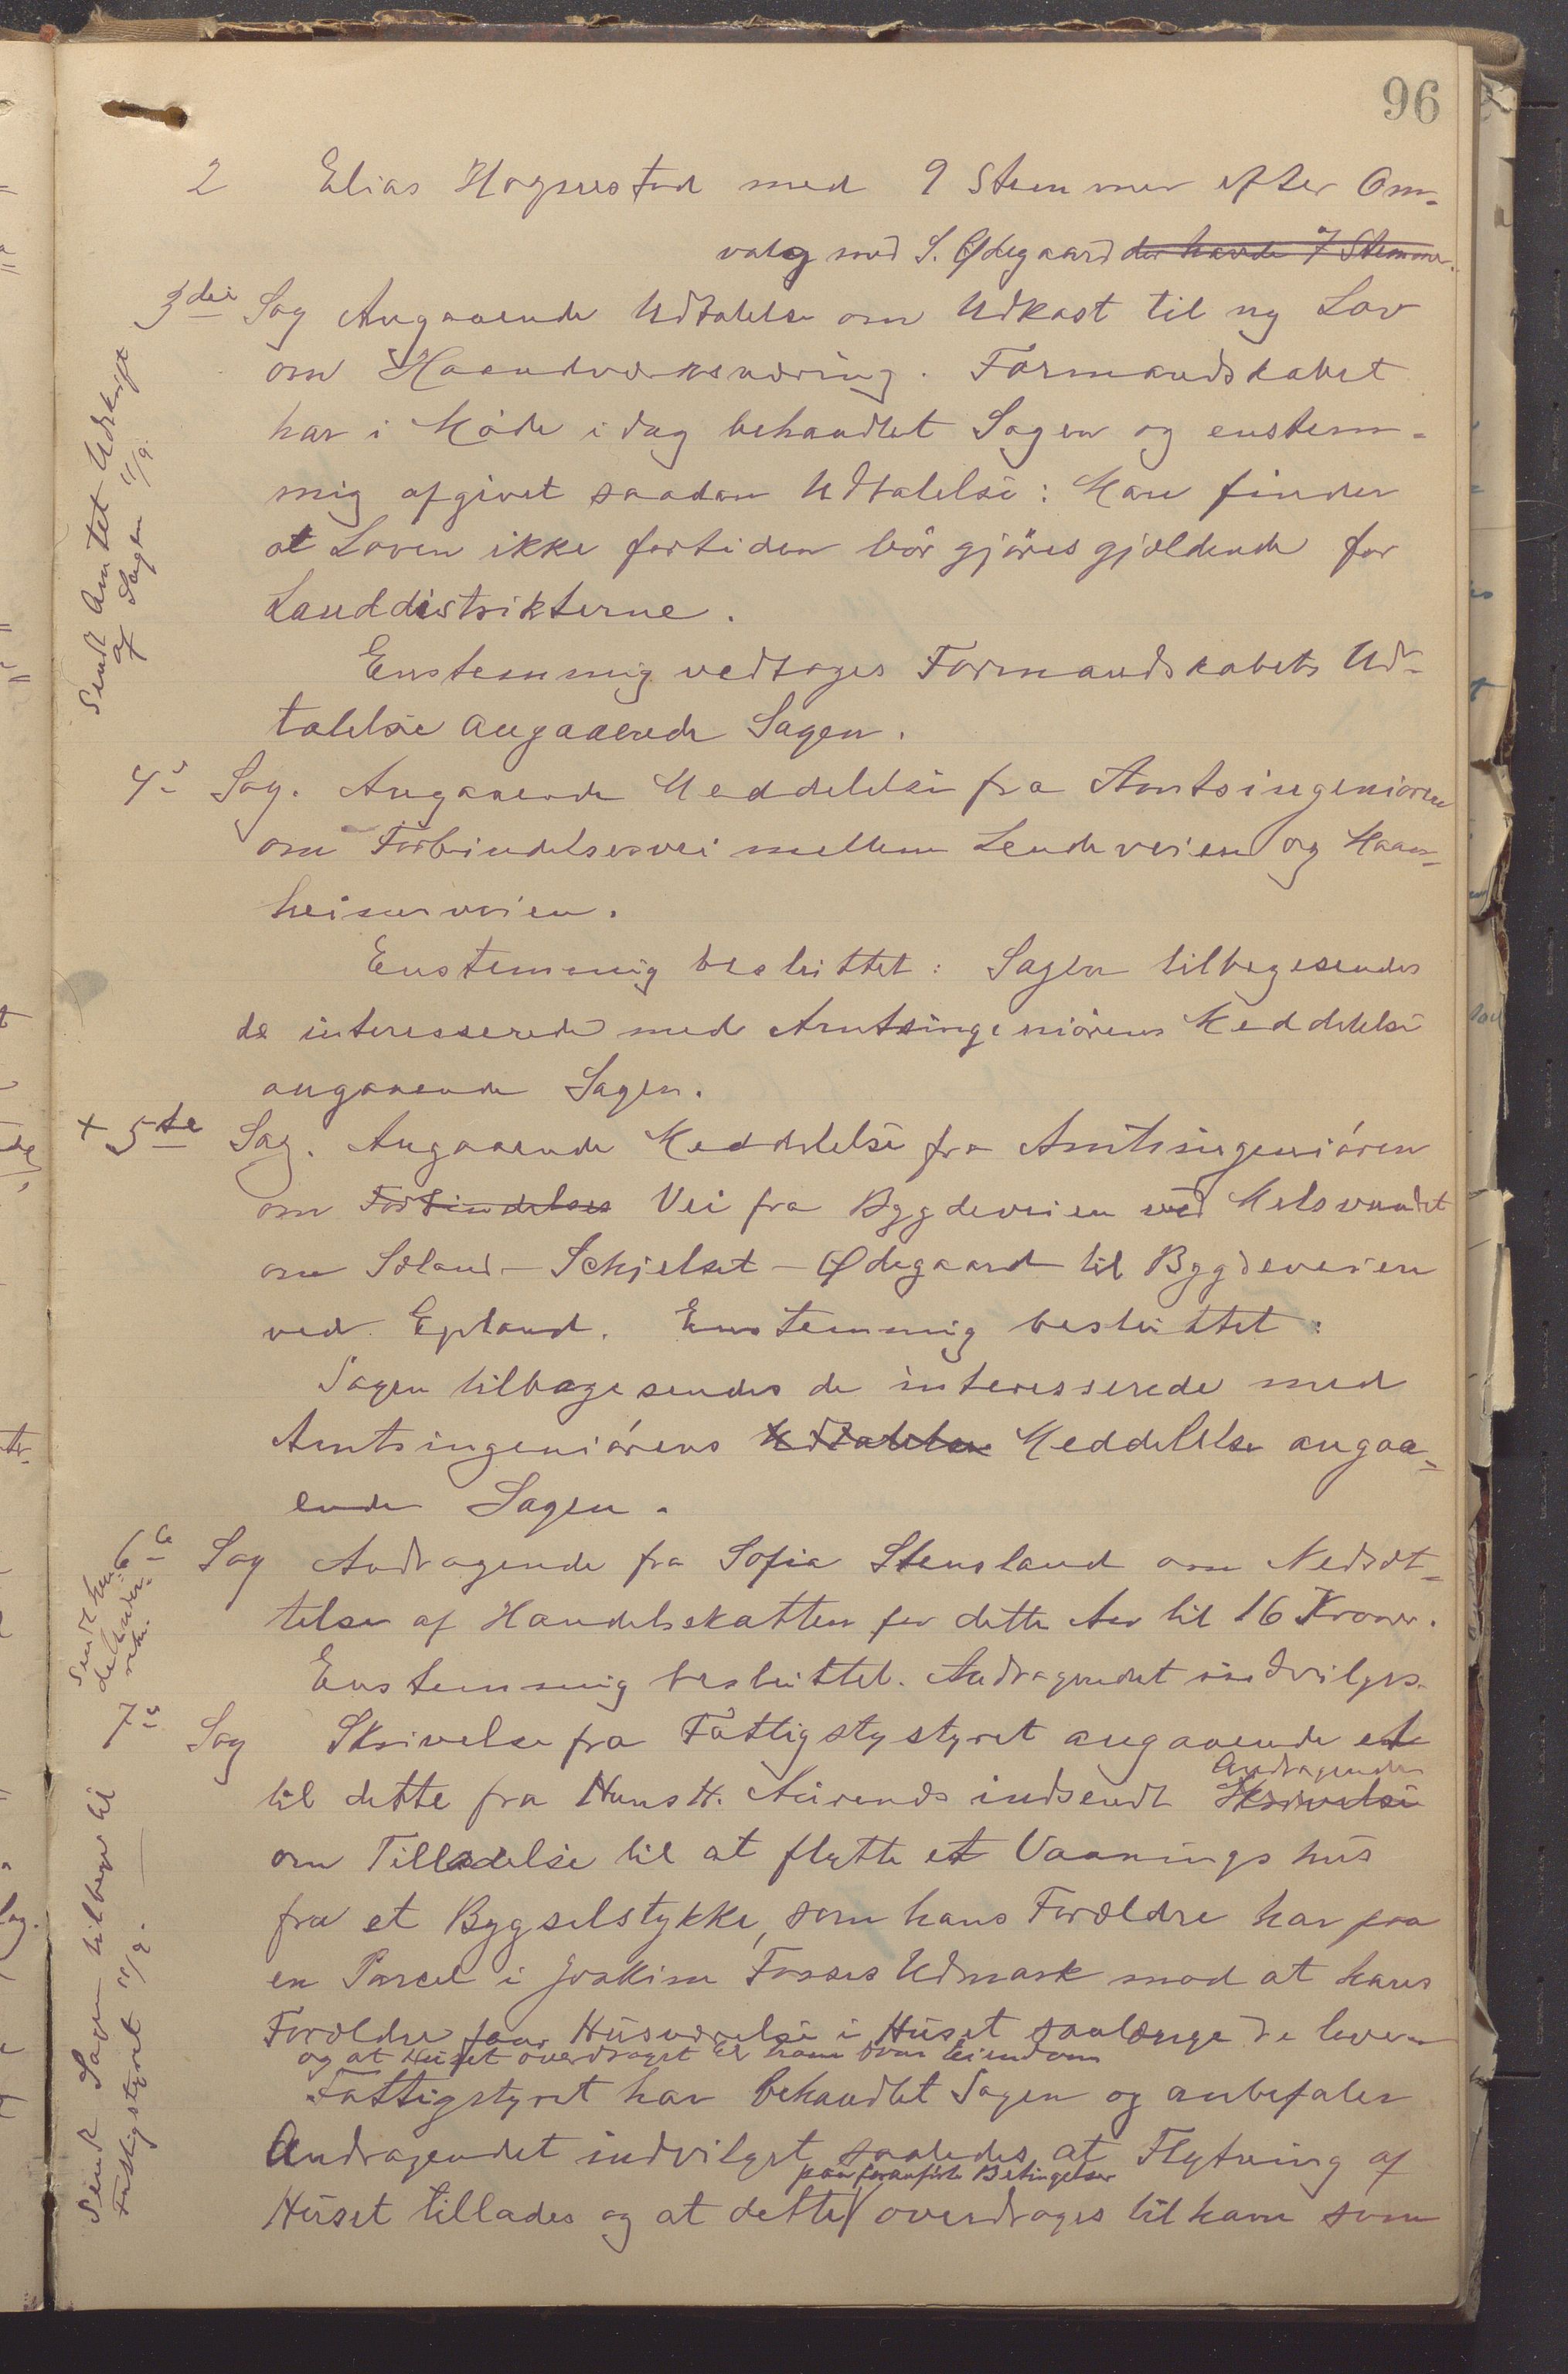 96
2 Elias Hognestad med 9 Stemmer efter Om-
valg med S. Ødegaard der havde 7 Stemmer.
3die Sag Angaaende Udtalelse om Udkast til ny Lov
om Haandværksnæring. Formandskabet
har i Møde idag behandlet Sagen og enstem-
mig afgivet saadan Udtalelse: Man finder
at Loven ikke fortiden bør gjøres gjældende for
Landdistrikterne.
Enstemmig vedtoges Formandskabets Ud-
talelse angaaende Sagen.
Sendt Amtet Udskrift
af Sagen 11/9.
4de Sag. Angaaende Meddelelse fra Amtsingeniøren
om Forbindelsesvei mellem Lendeveien og Haar-
heimsveien.
Enstemmig besluttet: Sagen tilbagesendes
de interesserede med Amtsingeniørens Meddelelse
angaaende Sagen.
+ 5te Sag. Angaaende Meddelelse fra Amtsingeniøren
om Forbindelses Vei fra Bygdeveien ved Melsvandet
om Sæland - Schjelset - Ødegaard til Bygdeveien
ved Epland. Enstemmig besluttet:
Sagen tilbagesendes de interesserede med
Amtsingeniørens Udtalelse Meddelelse angaa-
ende Sagen.
6te Sag Andragende fra Sofia Stensland om Nedsæt-
telse af Handelsskatten for dette Aar til 16 Kroner.
Enstemmig besluttet. Andragendet indvilges.
Sendt hen-
7de Sag Skrivelse fra Fattigstystyret angaaende et
Andragende
til dette fra Hans H. indsendt Skrivelse
om Tilladelse til at flytte et Vaaningshus
fra et Bygselstykke, som hans Forældre har paa
en Parcel i Joakim Fosses Udmark mod at hans
Forældre faar Husværelse i Huset saalænge de lever
og at Huset overdraget til ham som Eiendom
Fattigstyret har behandlet Sagen og anbefaler
Andragendet indvilget saaledes at Flytning af
paa foranførte Betingelser
Huset tillades og at dette overdrages til ham som
Sendt Sagen tilbage til
Fattigstyret 11/9.